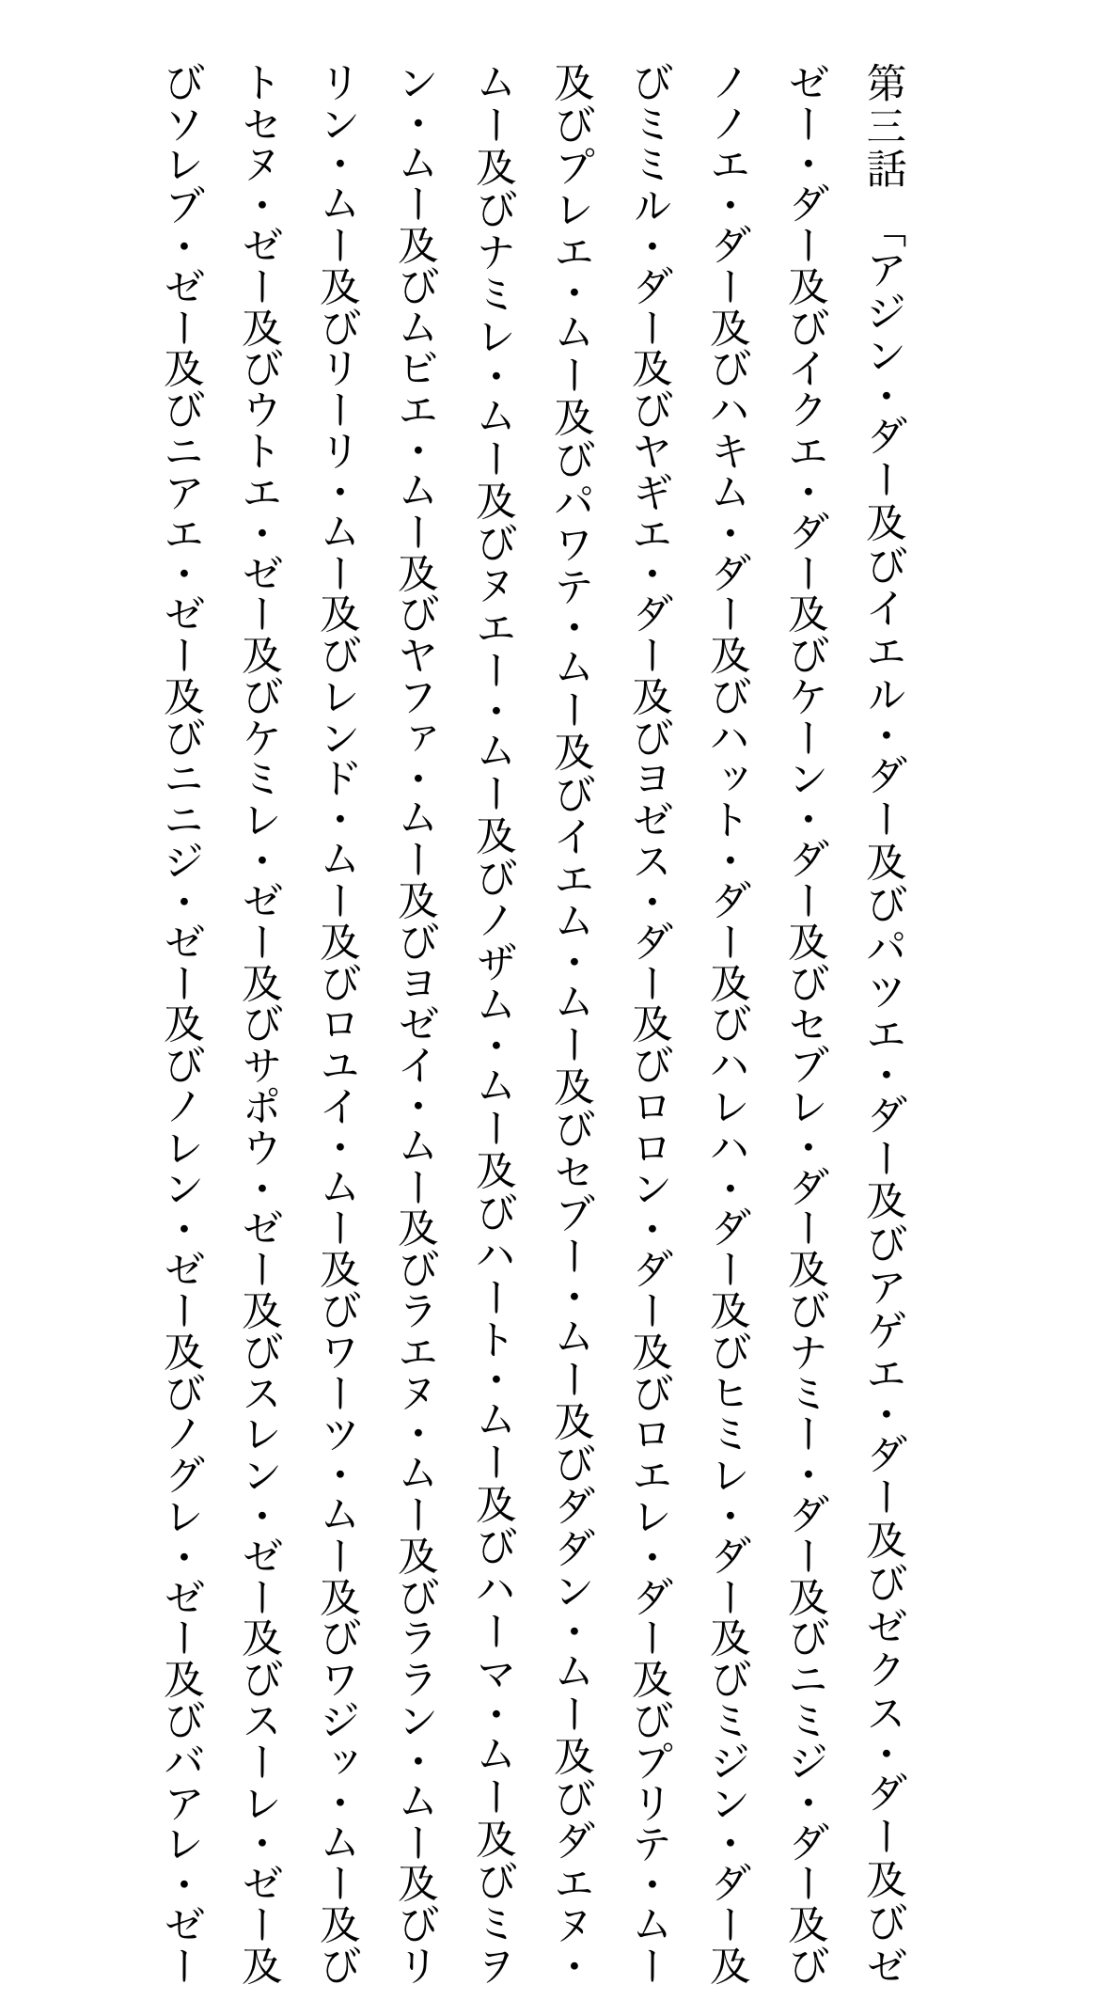 第三話　「アジン・ダー及びイエル・ダー及びパツエ・ダー及びアゲエ・ダー及びゼクス・ダー及びゼ
ゼー・ダー及びイクエ・ダー及びケーン・ダー及びセブレ・ダー及びナミー・ダー及びニミジ・ダー及び
ノノエ・ダー及びハキム・ダー及びハット・ダー及びハレハ・ダー及びヒミレ・ダー及びミジン・ダー及
びミミル・ダー及びヤギエ・ダー及びヨゼス・ダー及びロロン・ダー及びロエレ・ダー及びプリテ・ムー
及びプレエ・ムー及びパワテ・ムー及びイエム・ムー及びセブー・ムー及びダダン・ムー及びダエヌ・
ムー及びナミレ・ムー及びヌエー・ムー及びノザム・ムー及びハート・ムー及びハーマ・ムー及びミヲ
ン・ムー及びムビエ・ムー及びヤファ・ムー及びヨゼイ・ムー及びラエヌ・ムー及びララン・ムー及びリ
リン・ムー及びリーリ・ムー及びレンド・ムー及びロユイ・ムー及びワーツ・ムー及びワジッ・ムー及び
トセヌ・ゼー及びウトエ・ゼー及びケミレ・ゼー及びサポウ・ゼー及びスレン・ゼー及びスーレ・ゼー及
びソレブ・ゼー及びニアエ・ゼー及びニニジ・ゼー及びノレン・ゼー及びノグレ・ゼー及びバアレ・ゼー